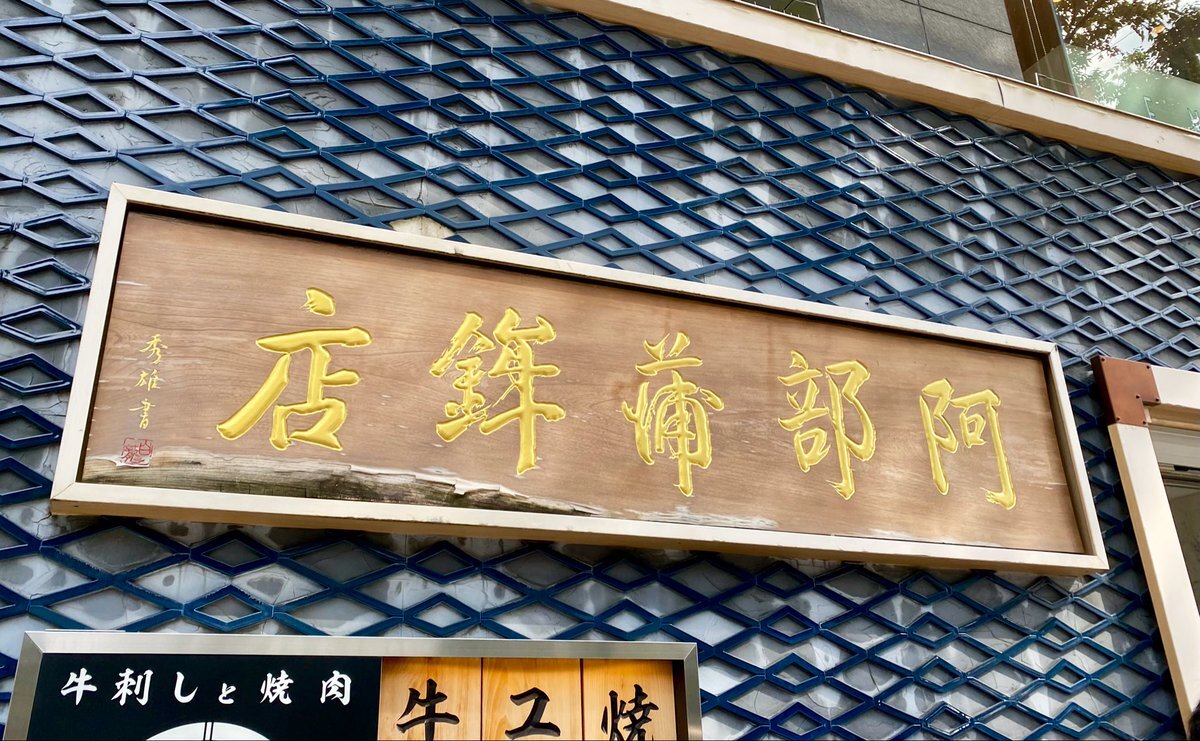 阿部蒲鉾店
秀雄書
牛刺しと焼肉
牛 焼